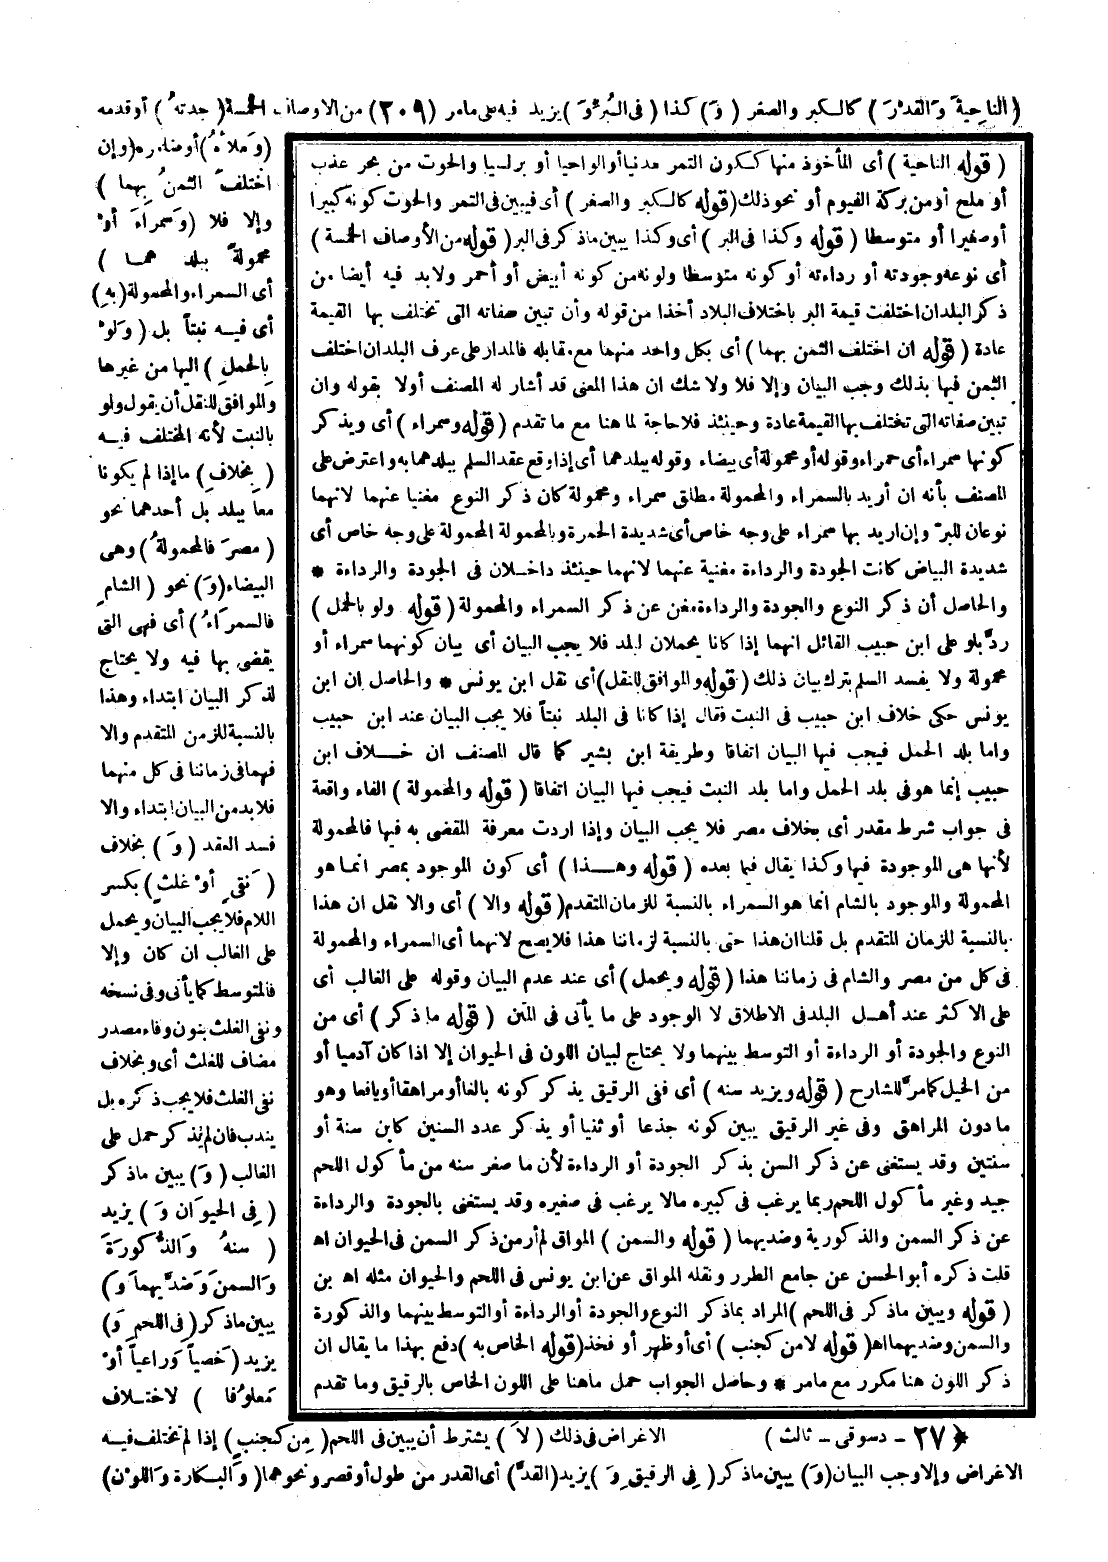 (الناحية والقدر) كالكبر والصغر (و) كذا (في البر و) يزيد فيه على مامر (٢٠٩) من الاوصاف الخمسة (جدته) أو قدمه
(وملأه) أو ضامره (وإن
اختلف الثمن بهما)
وإلا فلا (وسمراء أو
محمولة ببلد هما)
أى السمراء والمحمولة (به)
أى فيه نبتاً بل (ولو
بالحمل) اليها من غيرها
والموافق للنقل أن يقول ولو
بالنبت لأنه المختلف فيه
(بخلاف) ما إذا لم يكونا
معا ببلد بل أحدهما نحو
(مصر فالمحمولة) وهى
البيضاء (و) نحو (الشام
فالسمراء) أى فهى التى
يقضى بها فيه ولا يحتاج
لذكر البيان ابتداء وهذا
بالنسبة للزمن المتقدم والا
فهما فى زماننا فى كل منهما
فلابد من البيان ابتداء والا
فسد العقد (و) بخلاف
(نقى أو غلث) بكسر
اللام فلا يجب البيان ويحمل
على الغالب ان كان وإلا
فالمتوسط كما يأتى وفى نسخه
ونفى الغلث بنون وفاء مصدر
مضاف للغلث أى وبخلاف
نفى الغلث فلا يجب ذكره بل
يندب فان لم يذكر حمل على
الغالب (و) يبين ماذكر
(فى الحيوان و) يزيد
(سنه والذكورة
والسمن وضديهما و)
يبين ماذكر (فى اللحم و)
يزيد (خصياً وراعياً أو
معلوفا) لاختلاف
(قوله الناحية) أى المأخوذ منها ككون التمر مدنيا أو الواحيا أو برلسيا والحوت من بحر عذب
أو ملح أو من بركة الفيوم أو نحو ذلك (قوله كالكبر والصغر) أى فيبين فى التمر والحوت كونه كبيرا
أو صغيرا أو متوسطا (قوله وكذا فى البر) أى وكذا يبين ماذكر فى البر (قوله من الأوصاف الخمسة)
أى نوعه وجودته أو رداءته أو كونه متوسطا ولونه من كونه أبيض أو أحمر ولابد فيه أيضا من
ذكر البلدان اختلفت قيمة البر باختلاف البلاد أخذا من قوله وأن تبين صفاته التى تختلف بها القيمة
عادة (قوله ان اختلف الثمن بهما) أى بكل واحد منهما مع مقابله فالمدار على عرف البلدان اختلف
الثمن فيها بذلك وجب البيان وإلا فلا ولا شك ان هذا المعنى قد أشار له المصنف أولا بقوله وان
تبين صفاته التى تختلف بها القيمة عادة وحينئذ فلا حاجة لما هنا مع ما تقدم (قوله وسمراء) أى ويذكر
كونها سمراء أى حمراء وقوله أو محمولة أى بيضاء وقوله ببلد هما أى إذا وقع عقد السلم ببلد هما به واعترض على
المصنف بأنه ان أريد بالسمراء والمحمولة مطلق سمراء ومحمولة كان ذكر النوع مغنيا عنهما لانهما
نوعان للبر وإن اريد بها سمراء على وجه خاص أى شديدة الحمرة وبالمحمولة المحمولة على وجه خاص أى
شديدة البياض كانت الجودة والرداءة مغنية عنهما لانهما حينئذ داخلان فى الجودة والرداءة *
والحاصل أن ذكر النوع والجودة والرداءة مغن عن ذكر السمراء والمحمولة (قوله ولو بالحمل)
رد بلو على ابن حبيب القائل انهما إذا كانا يحملان لبلد فلا يجب البيان أى بيان كونهما سمراء أو
محمولة ولا يفسد السلم بترك بيان ذلك (قوله والموافق للنقل) أى نقل ابن يونس * والحاصل ان ابن
يونس حكى خلاف ابن حبيب فى النبت فقال إذا كانا فى البلد نبتاً فلا يجب البيان عند ابن حبيب
واما بلد الحمل فيجب فيها البيان اتفاقا وطريقة ابن بشير كما قال المصنف ان خلاف ابن
حبيب إنما هو فى بلد الحمل واما بلد النبت فيجب فيها البيان اتفاقا (قوله والمحمولة) الفاء واقعة
فى جواب شرط مقدر أى بخلاف مصر فلا يجب البيان وإذا اردت معرفة المقضى به فيها فالمحمولة
لأنها هى الموجودة فيها وكذا يقال فيما بعده (قوله وهذا) أى كون الموجود بمصر انما هو
المحمولة والموجود بالشام انما هو السمراء بالنسبة للزمان المتقدم (قوله والا) أى والا نقل ان هذا
بالنسبة للزمان المتقدم بل قلنا ان هذا حتى بالنسبة لزماننا هذا فلا يصح لانهما أى السمراء والمحمولة
فى كل من مصر والشام فى زماننا هذا (قوله ويحمل) أى عند عدم البيان وقوله على الغالب أى
على الاكثر عند أهل البلد فى الاطلاق لا الوجود على ما يأتى فى المتن (قوله ماذكر) أى من
النوع والجودة أو الرداءة أو التوسط بينهما ولا يحتاج لبيان اللون فى الحيوان إلا اذا كان آدميا أو
من الخيل كما مر للشارح (قوله ويزيد سنه) أى ففى الرقيق يذكر كونه بالغا أو مراهقا أو يافعا وهو
مادون المراهق وفى غير الرقيق يبين كونه جذعا أو ثنيا أو يذكر عدد السنين كابن سنة أو
سنتين وقد يستغنى عن ذكر السن بذكر الجودة أو الرداءة لأن ما صغر سنه من مأكول اللحم
جيد وغير مأكول اللحم ربما يرغب فى كبيره مالا يرغب فى صغيره وقد يستغنى بالجودة والرداءة
عن ذكر السمن والذكورية وضديهما (قوله والسمن) المواق لم أر من ذكر السمن فى الحيوان اه
قلت ذكره أبو الحسن عن جامع الطرر ونقله المواق عن ابن يونس فى اللحم والحيوان مثله اه بن
(قوله ويبين ماذكر فى اللحم) المراد بماذكر النوع والجودة أو الرداءة أو التوسط بينهما والذكورة
والسمن وضديهما اه (قوله لا من كجنب) أى أو ظهر أو فخذ (قوله الخاص به) دفع بهذا ما يقال ان
ذكر اللون هنا مكرر مع مامر * وحاصل الجواب حمل ماهنا على اللون الخاص بالرقيق وما تقدم
الاغراض فى ذلك (لا) يشترط أن يبين فى اللحم (من كجنب) إذا لم تختلف فيه
﴿٢٧ - دسوقى - ثالث)
الاغراض وإلا وجب البيان (و) يبين ماذكر (فى الرقيق و) يزيد (القد) أى القدر من طول أو قصر ونحوهما (والبكارة واللون)